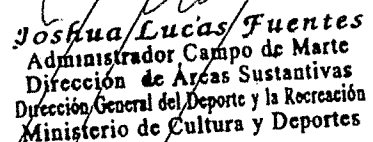 Joshua Lucas Fuentes
Administrador Campo de Marte
Dirección de Areas Sustantivas
Dirección General del Deporte y la Recreación
Ministerio de Cultura y Deportes